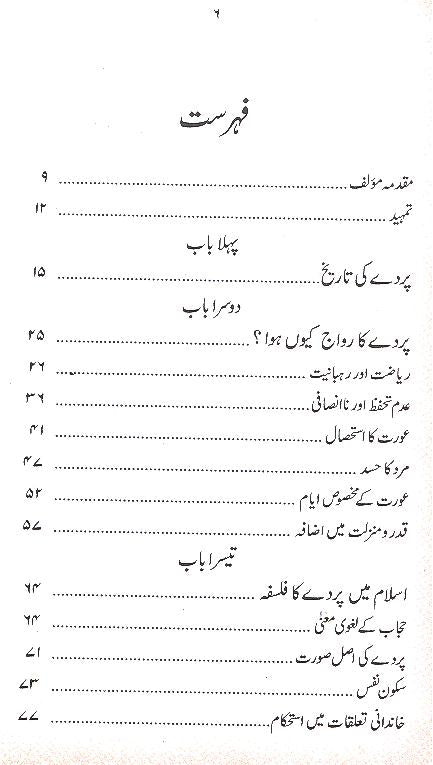 ۶
فہرست
مقدمہ مؤلف ........ ۹
تمہید ........ ۱۲
پہلا باب
پردے کی تاریخ ........ ۱۵
دوسرا باب
پردے کا رواج کیوں ہوا ؟ ........ ۲۵
ریاضت اور رہبانیت ........ ۲۶
عدم تحفظ اور ناانصافی ........ ۳۶
عورت کا استحصال ........ ۴۱
مرد کا حسد ........ ۴۷
عورت کے مخصوص ایام ........ ۵۲
قدر و منزلت میں اضافہ ........ ۵۷
تیسرا باب
اسلام میں پردے کا فلسفہ ........ ۶۴
حجاب کے لغوی معنی ........ ۶۴
پردے کی اصل صورت ........ ۷۱
سکون نفس ........ ۷۳
خاندانی تعلقات میں استحکام ........ ۷۷